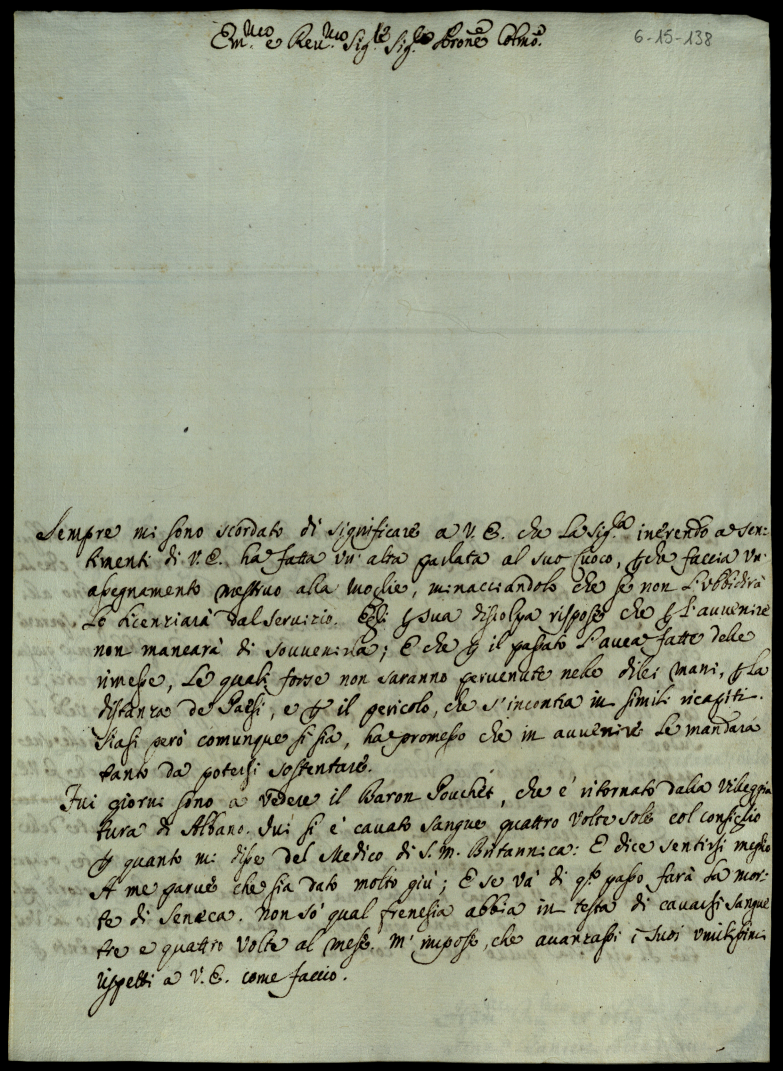 Em.mo e Rev.mo Sig.re Sig.re Prone Colmo.
6-15-138
Sempre mi sono scordato di significare a V. E. che La Sig.ra inerendo a sen:
timenti di V. E. ha fatta un' alta parlata al suo Cuoco, p che faccia un
assegnamento mestruo alla moglie, minacciandolo che se non L'ubbidirà
Lo licenziarà dal servizio. Egli p sua discolpa rispose che p L'auuenire
non mancarà di souuenirla; E che p il passato L'avea fatte delle
rimesse, Le quali forse non saranno peruenute nelle di lei mani, p La
distanza de Paesi, e p il pericolo, che s'incontra in simili ricapiti.
Siasi però comunque si sia, ha promesso che in auuenire Le mandarà
tanto da potersi sostentare.
Fui giorni sono a vedere il Baron Pouchet, che è ritornato dalla Villeggia
tura di Albano. Ivi si è cavato sangue quattro volte solo col consiglio
p quanto mi disse del Medico di S. M. Britannica: E dice sentirsi meglio
A me parue che sia dato molto giù; E se và di q.to passo farà La mor:
te di Seneca. non sò qual frenesia abbia in testa di cauarsi sangue
tre e quattro Volte al mese. M' impose, che auanzassi i suoi umilissimi
rispetti a V. E. come faccio.